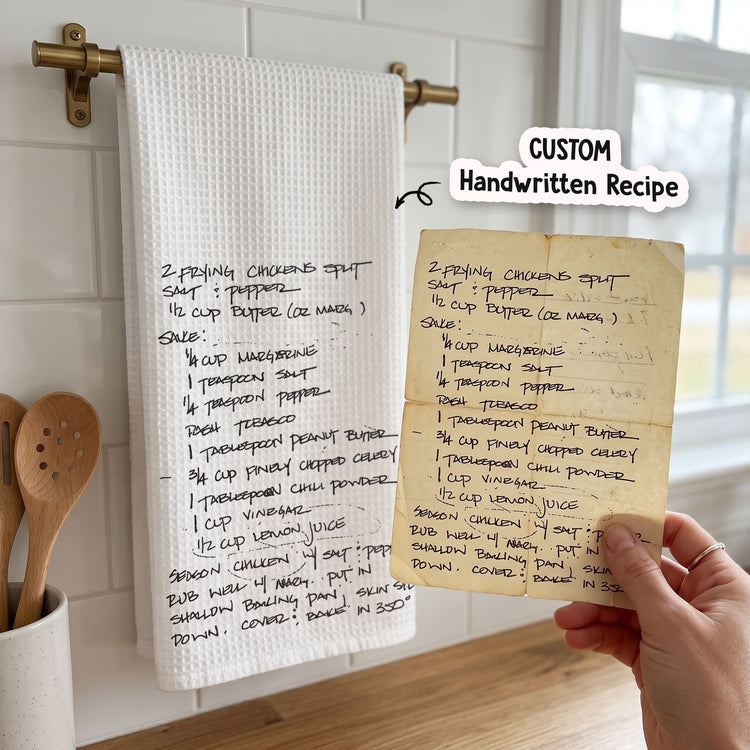 CUSTOM
Handwritten Recipe
2 FRYING CHICKENS SPLIT
SALT : PEPPER
1/2 CUP BUTTER (OR MARG)
SAUCE:
1/4 CUP MARGERINE
1 TEASPOON SALT
1/4 TEASPOON PEPPER
DASH TOBASCO
1 TABLESPOON PEANUT BUTTER
3/4 CUP FINELY CHOPPED CELERY
1 TABLESPOON CHILI POWDER
1 CUP VINEGAR
1/2 CUP LEMON JUICE
SEASON CHICKEN W/ SALT : PEPP
RUB WELL W/ MARG. PUT IN
SHALLOW BAKING PAN, SKIN SI
DOWN. COVER : BAKE IN 350°
2 FRYING CHICKENS SPLIT
SALT : PEPPER
1/2 CUP BUTTER (OR MARG)
SAUCE:
1/4 CUP MARGERINE
1 TEASPOON SALT
1/4 TEASPOON PEPPER
DASH TOBASCO
1 TABLESPOON PEANUT BUTTER
3/4 CUP FINELY CHOPPED CELERY
1 TABLESPOON CHILI POWDER
1 CUP VINEGAR
1/2 CUP LEMON JUICE
SEASON CHICKEN W/ SALT : P
RUB WELL W/ MARG. PUT IN
SHALLOW BAKING PAN, SKIN
DOWN. COVER : BAKE IN 350